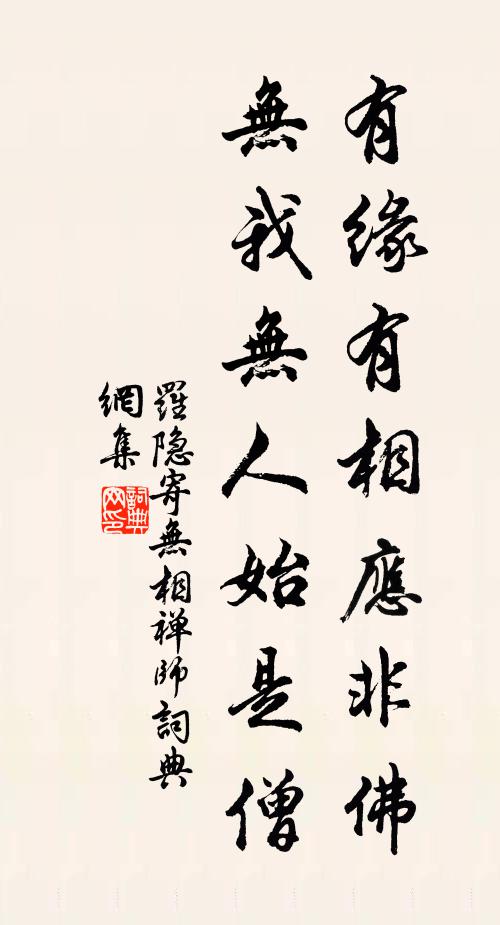 有緣有相應非佛
無我無人始是僧
羅隐寄無相禅師詞典
網集
詞典
网印